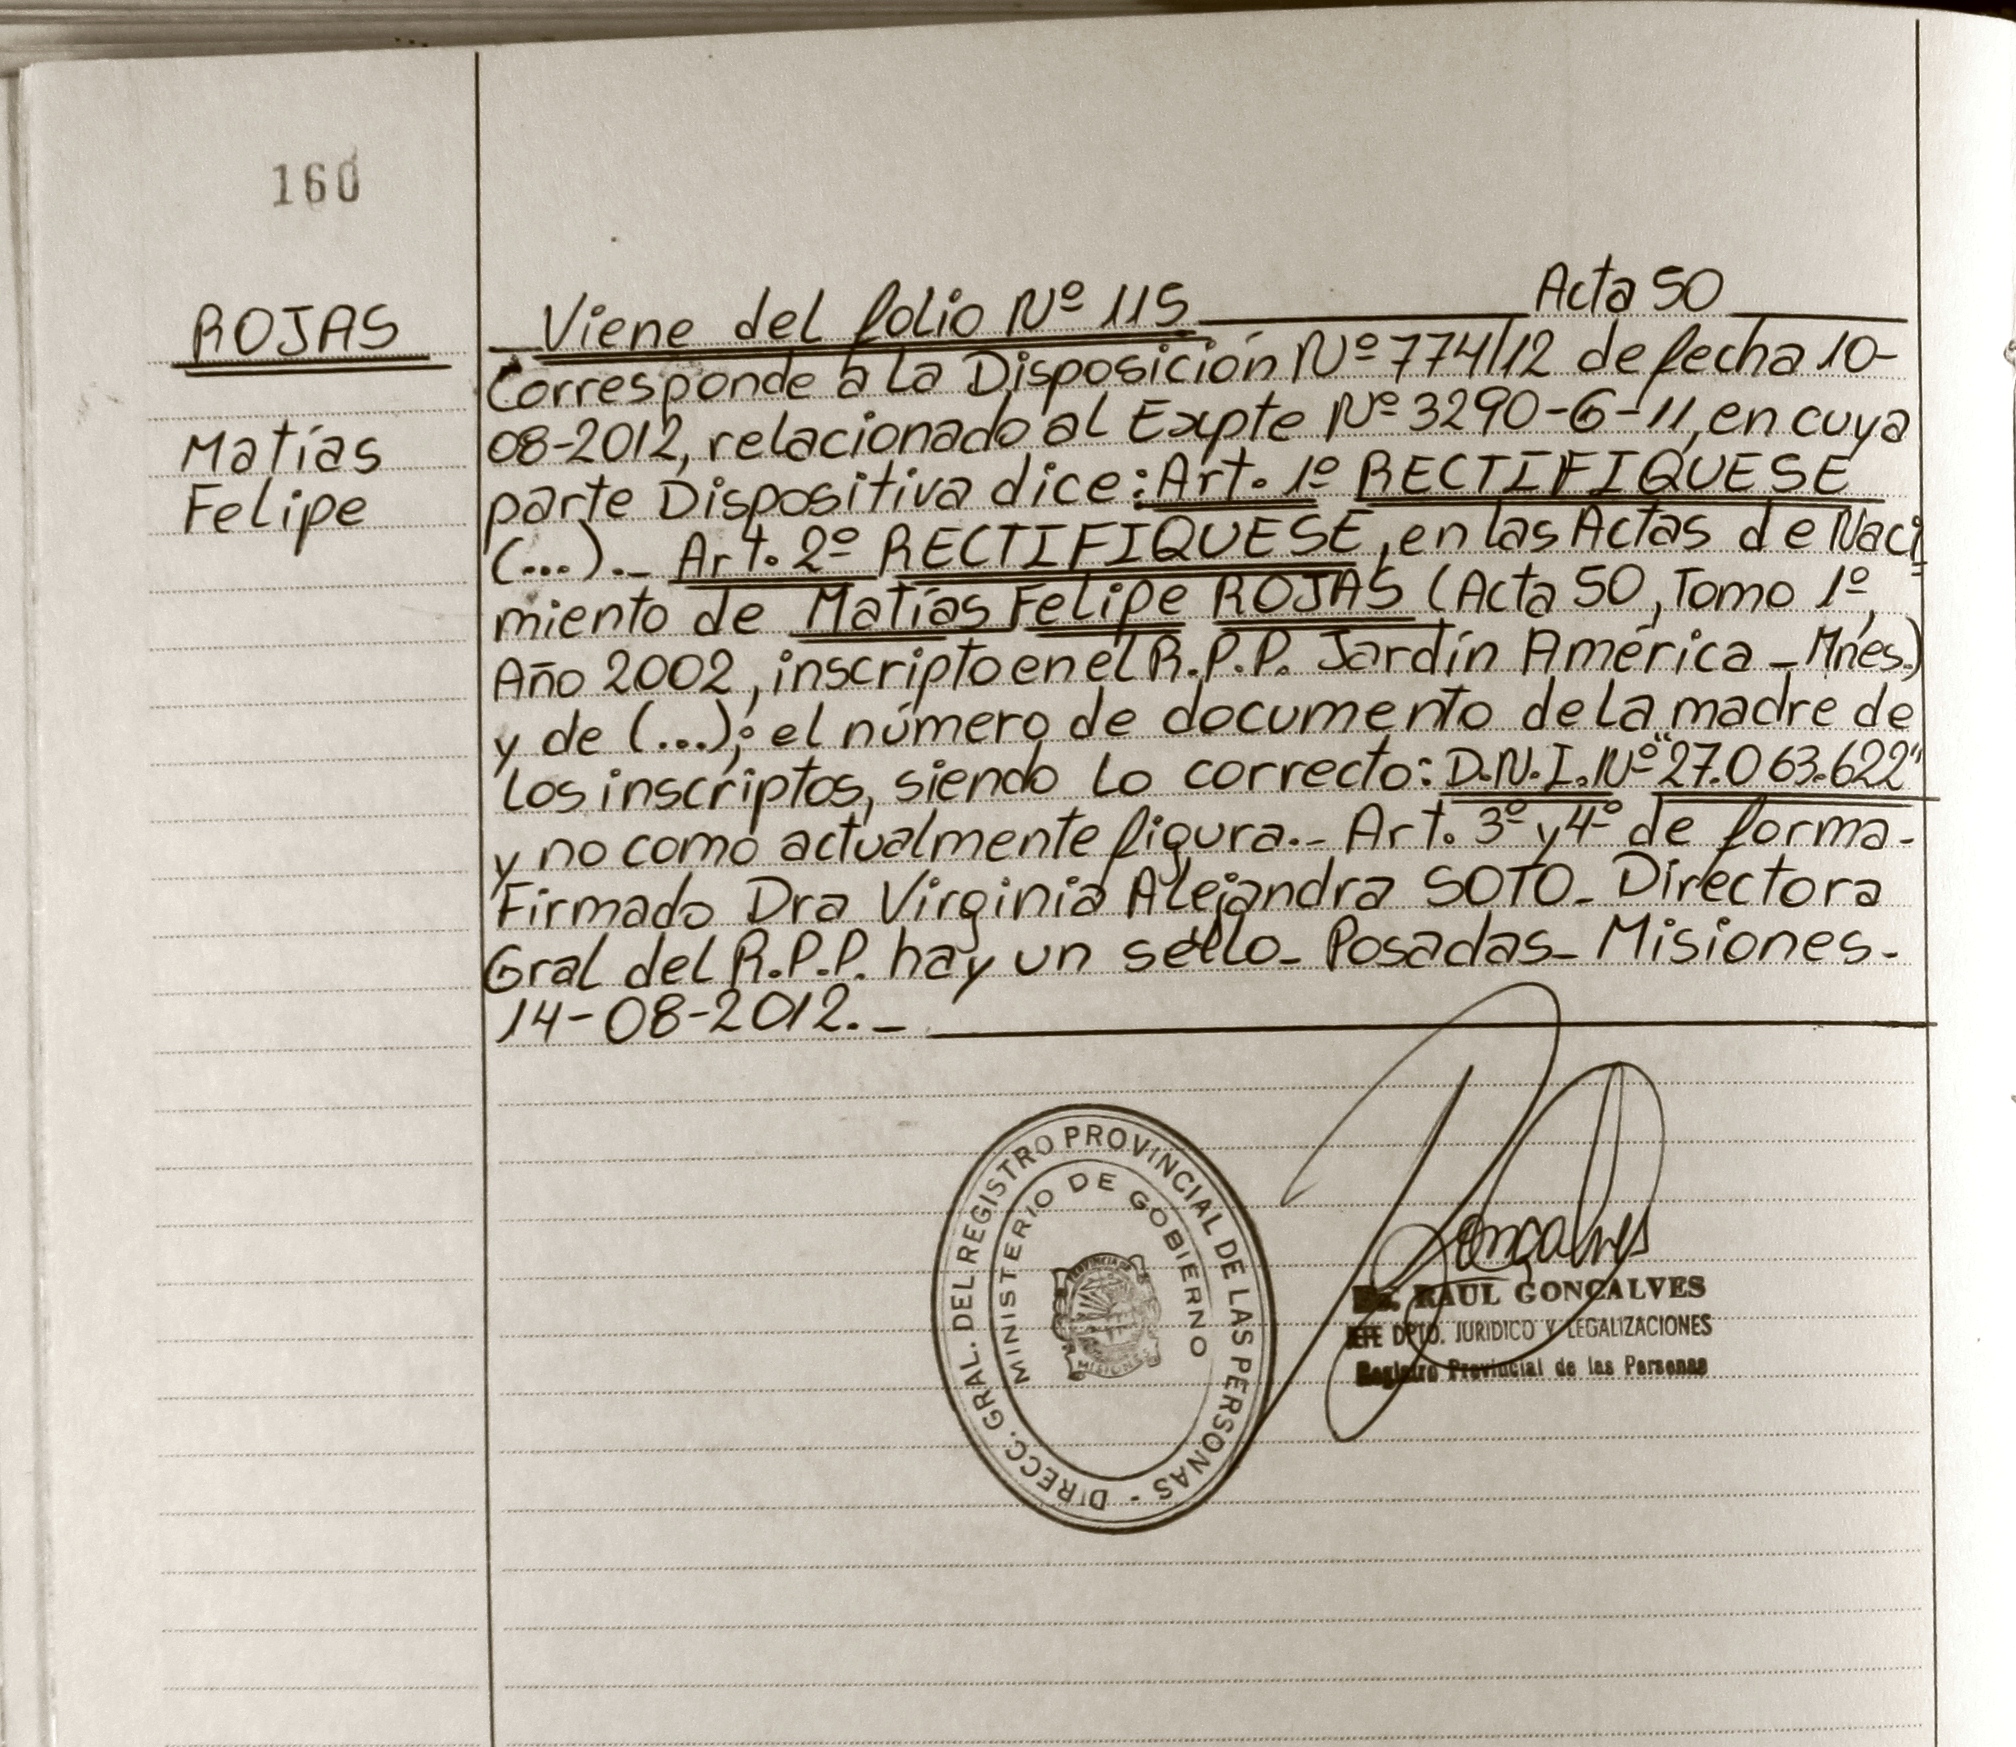 160
ROJAS
Matías
Felipe
Viene del folio Nº 115 Acta 50
Corresponde a La Disposición Nº 774/12 de fecha 10-
08-2012, relacionado al Expte Nº 3290-6-11, en cuya
parte Dispositiva dice: Art. 1º RECTIFIQUESE
(...)._ Art. 2º RECTIFIQUESE, en las Actas de Naci
miento de Matías Felipe ROJAS (Acta 50, Tomo 1º,
Año 2002, inscripto en el R.P.P. Jardín América - Mnes.)
y de (...); el número de documento de La madre de
Los inscriptos, siendo Lo correcto: D.N.I. Nº "27.063.622"
y no como actualmente figura._ Art. 3º y 4º de forma-
Firmado Dra Virginia Alejandra SOTO- Directora
Gral del R.P.P. hay un sello- Posadas- Misiones-
14-08-2012._
DIRECC. GRAL. DEL REGISTRO PROVINCIAL DE LAS PERSONAS -
MINISTERIO DE GOBIERNO
PROVINCIA DE
MISIONES
Goncalves
RAUL GONCALVES
JEFE DPTO. JURIDICO Y LEGALIZACIONES
Registro Provincial de las Personas